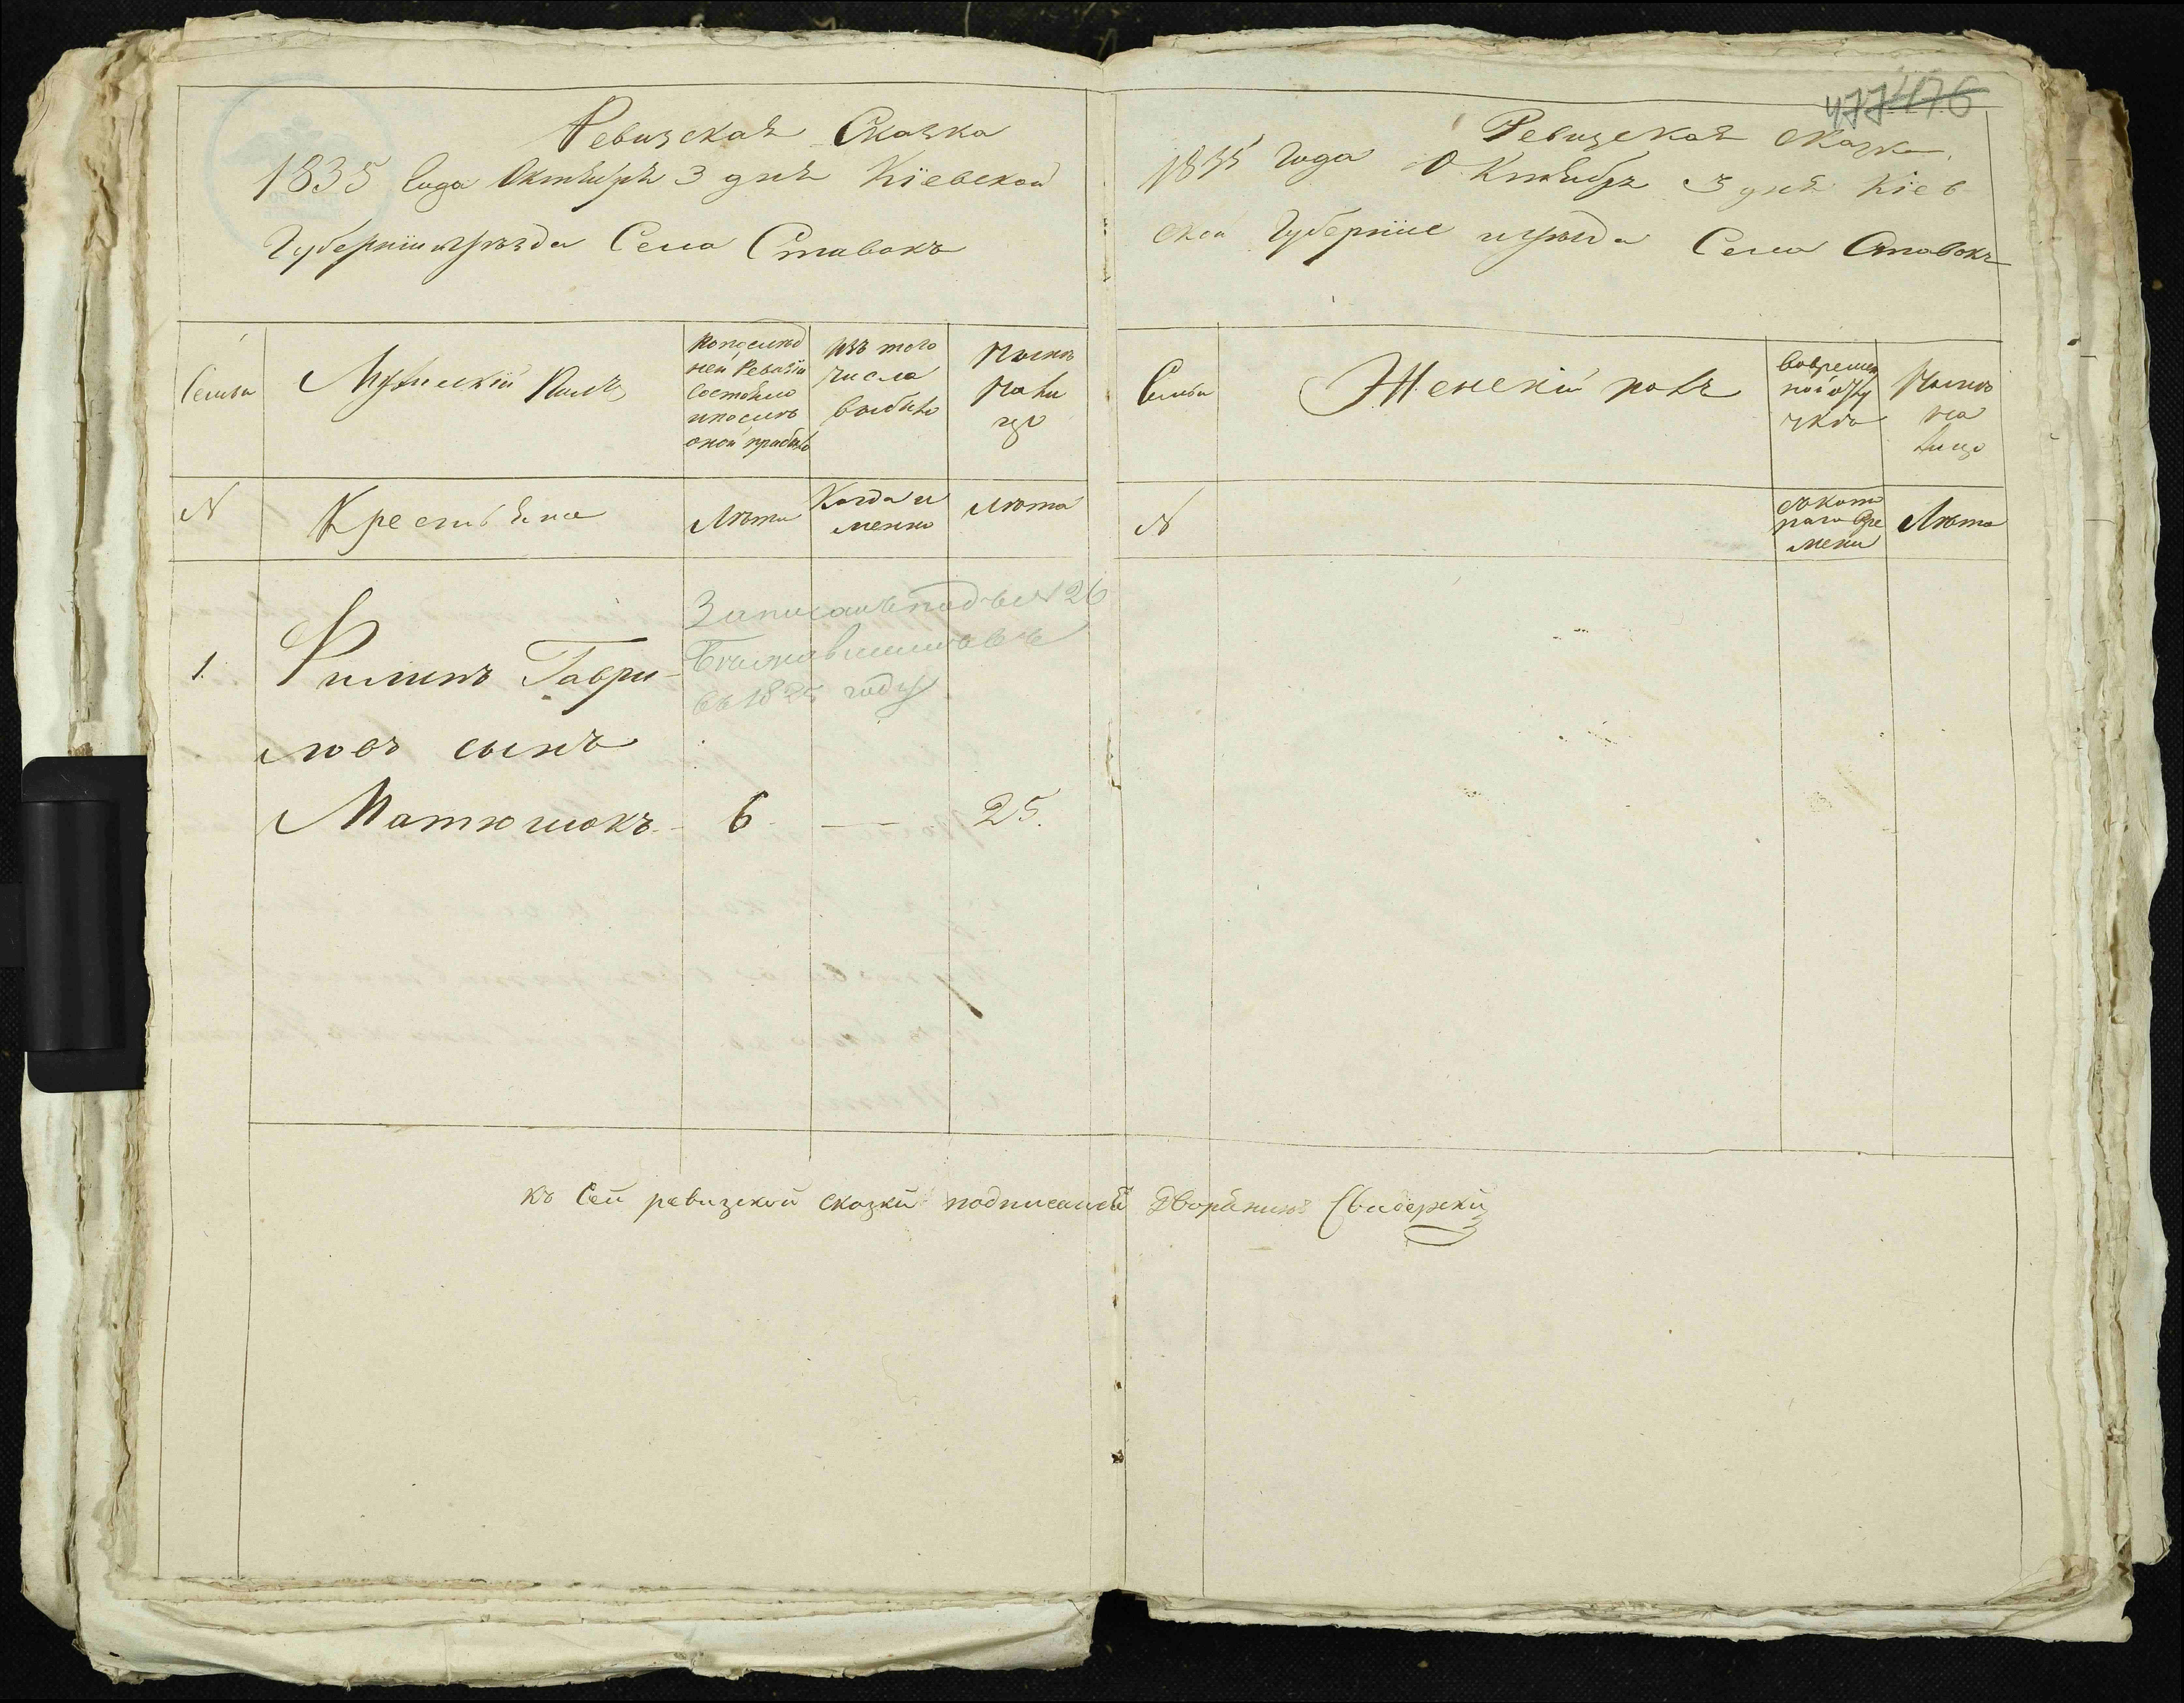 Ревизская Сказка
1835 Года Октября 3 дня Кіевской
Губерніи и уезда Села Ставокъ
Семьи
Мужескій Полъ
По последней Ревизіи состояло и после оной прибыло
Изъ того числа выбыло
Ныне на лицо
N
Крестьяне
Лета
Когда именно
Лета
Записанъ подъ N 26
въ 1825 году
1.
Филипъ Гаври-
ловъ сынъ
Матюшокъ - 6 — 25.
477 476
Ревизская сказка
1835 Года Октября 3 дня Кіев
ской Губерніи и уезда Села Ставокъ
Семьи
Женскій полъ
Во временной отлучке
Ныне на лицо
N
съ котораго времени
Лета
къ сей ревизской сказки подписался Дворянинъ Свидерскій